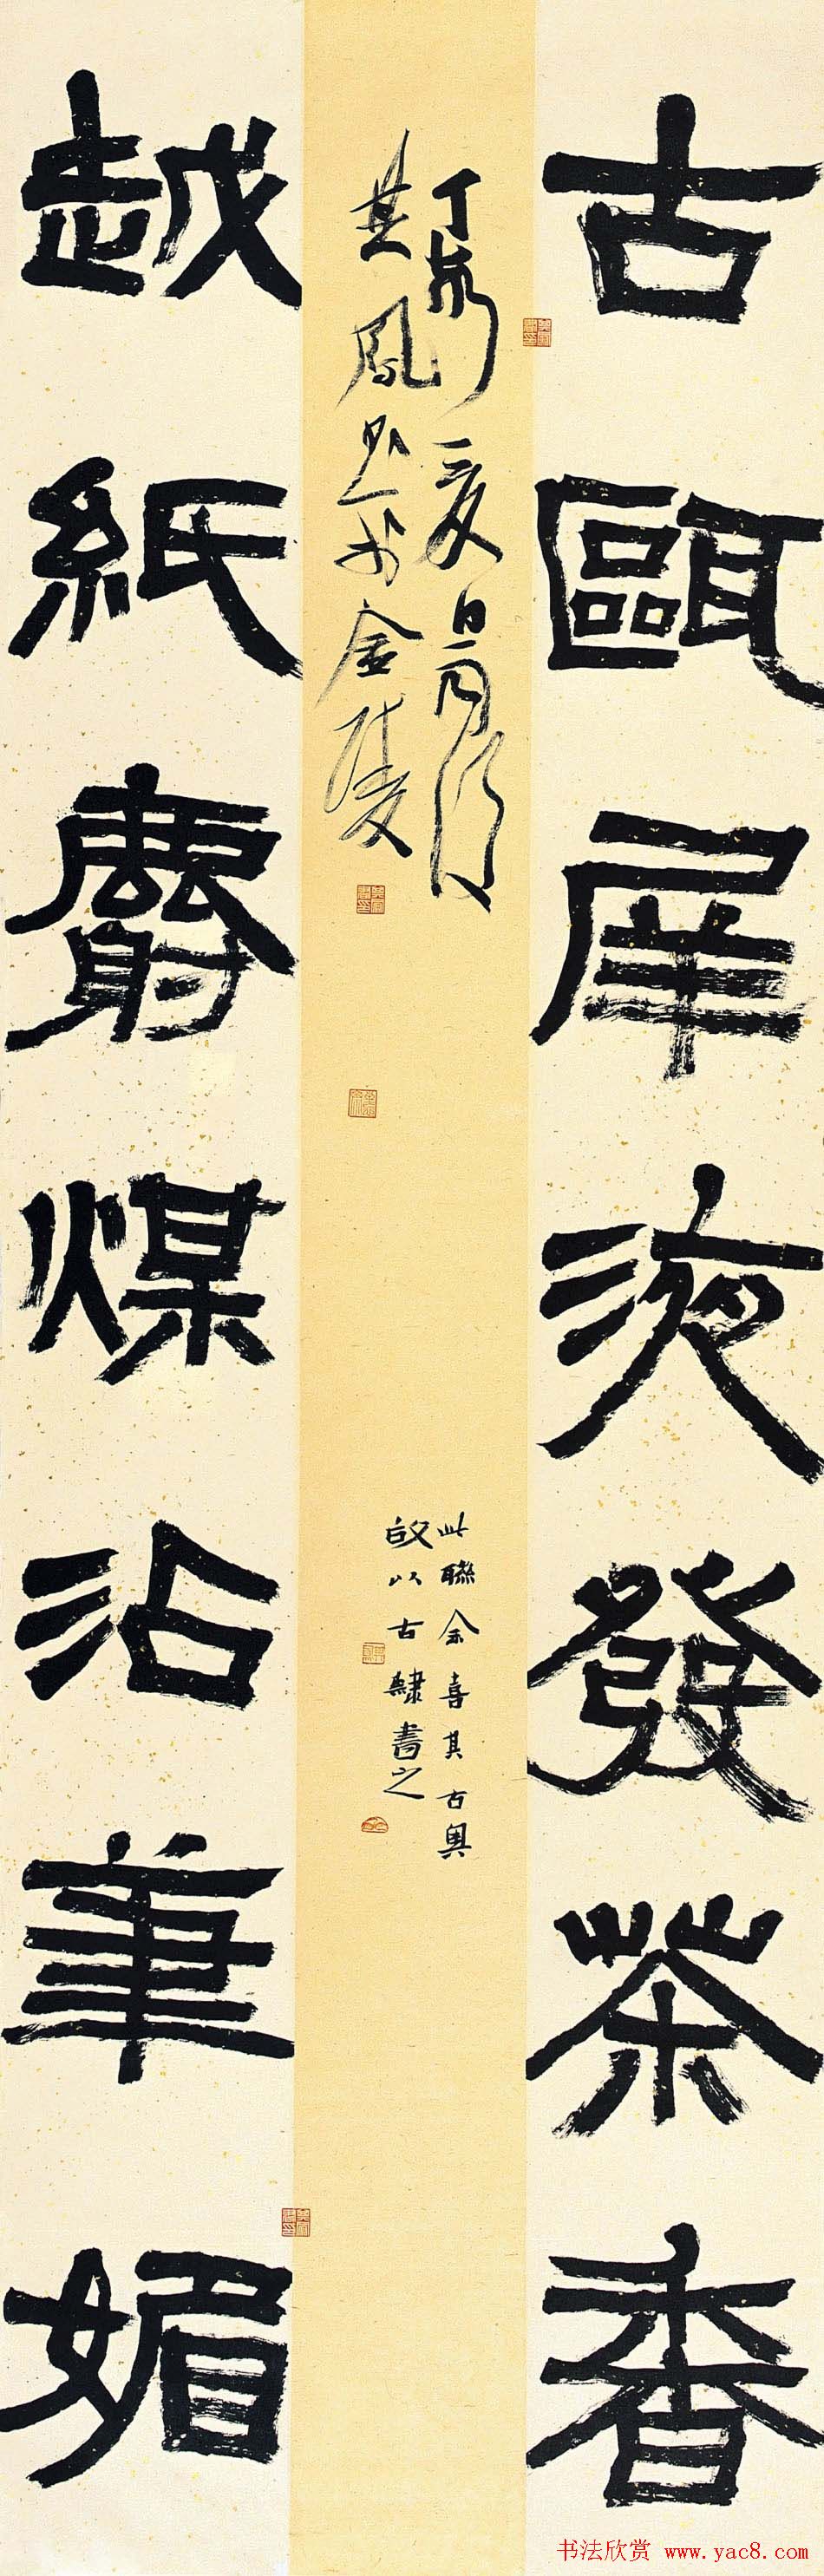 古甌犀液發茶香
越紙麝煤沾筆媚
丁亥夏日
金陵
此聯余喜其古奧
故以古隸書之
书法欣赏 www.yac8.com